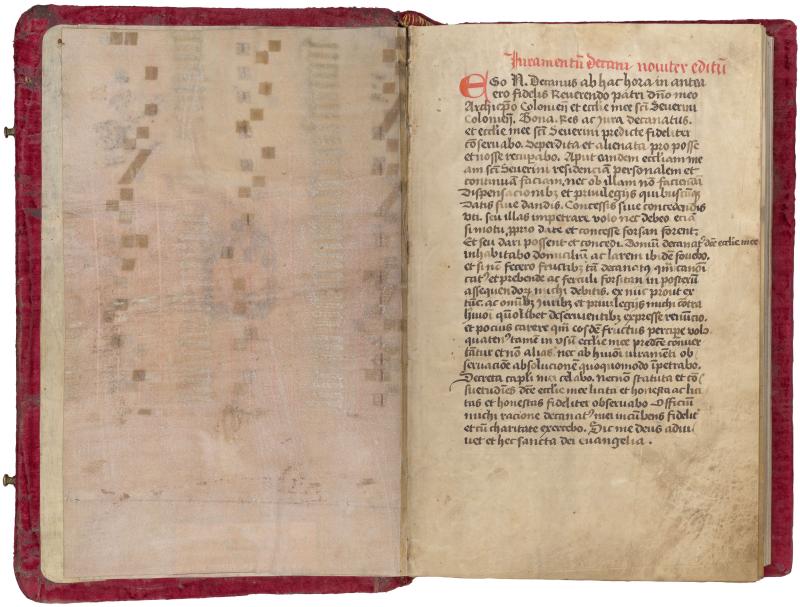 Iuramentū decani noviter editū
EGo N. Decanus ab hac hora in antea
ero fidelis Reuerendo patri dño meo
Archiepo Colonieñ et ecclie mee scti Seuerini
Colonieñ. Bona. Res ac Iura decanatus.
et ecclie mee scti Seuerini predicte fideliter
cōseruabo. Deperdita et alienata pro posse
et nosse recuꝑabo. Aput eandem eccliam me
am scti Seuerini residenciā personalem et
continuā faciam, nec ob illam nō faciendā
dispensacionibꝫ et priuilegijs quibuscūqꝫ
datis siue dandis. Concessis siue concedendis
vti. seu illas impetrare volo nec debeo eciā
si motu ꝓprio date et concesse forsan forent.
Et seu dari possent et concedi. Domū decanatꝰ dcē ecclie mee
inhabitabo domicilium ac larem ibidē fouebo.
et si nō fecero fructibꝫ tā decanatꝰ qm̄ canoni
catꝰ et prebende ac ferculi forsitan in posterū
assequendorꝫ michi debitis. ex nūc prout ex
tūc. ac omībꝫ iuribꝫ et priuilegijs michi cōtra
huiōi qūolibet deseruientibꝫ expresse renūcio.
et pocius carere qm̄ eosdē fructus percipe volo
quatenꝰ tamē in vsū ecclie mee predcē conuer
tātur et nō alias. nec ab huiōi iuramēti ob
seruaciōe absolucionē quoquomodo īpetrabo.
Secreta capli mei celabo. Necnō statuta et cō
suetudīes dcē ecclie mee licita et honesta ac lici
tas et honestas fideliter obseruabo Officiū
michi racione decanatꝰ mei incūbens fidelitʼ
et cū charitate exercebo. Sic me deus adiu
uet et hec sancta dei euangelia.